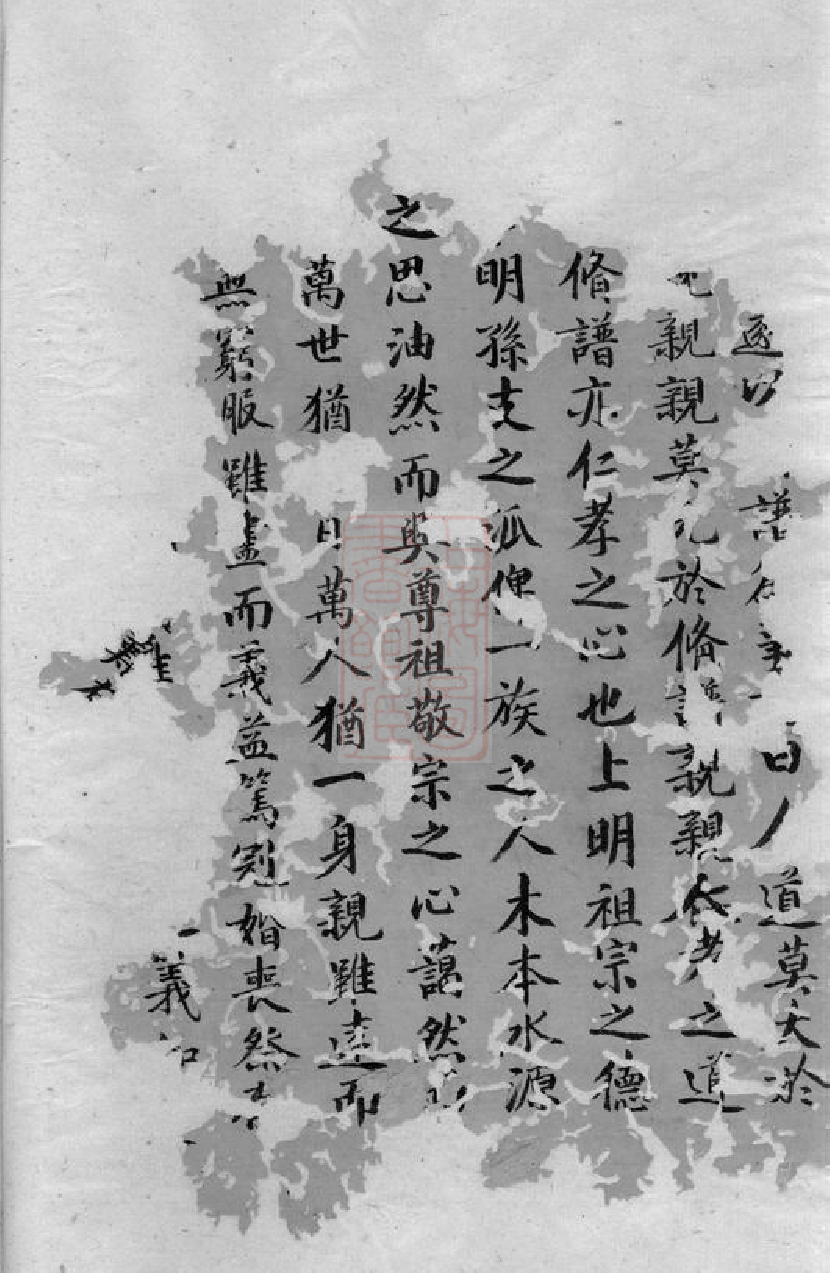 譜 曰 道莫大於
親親莫 於脩譜親親 之道
脩譜亦仁孝之心也上明祖宗之德
明孫支之派俾一族之人木本水源
之思油然而與尊祖敬宗之心藹然
萬世猶 日萬人猶一身親雖遠而
無窮服雖盡而義益篤 婚喪祭
義